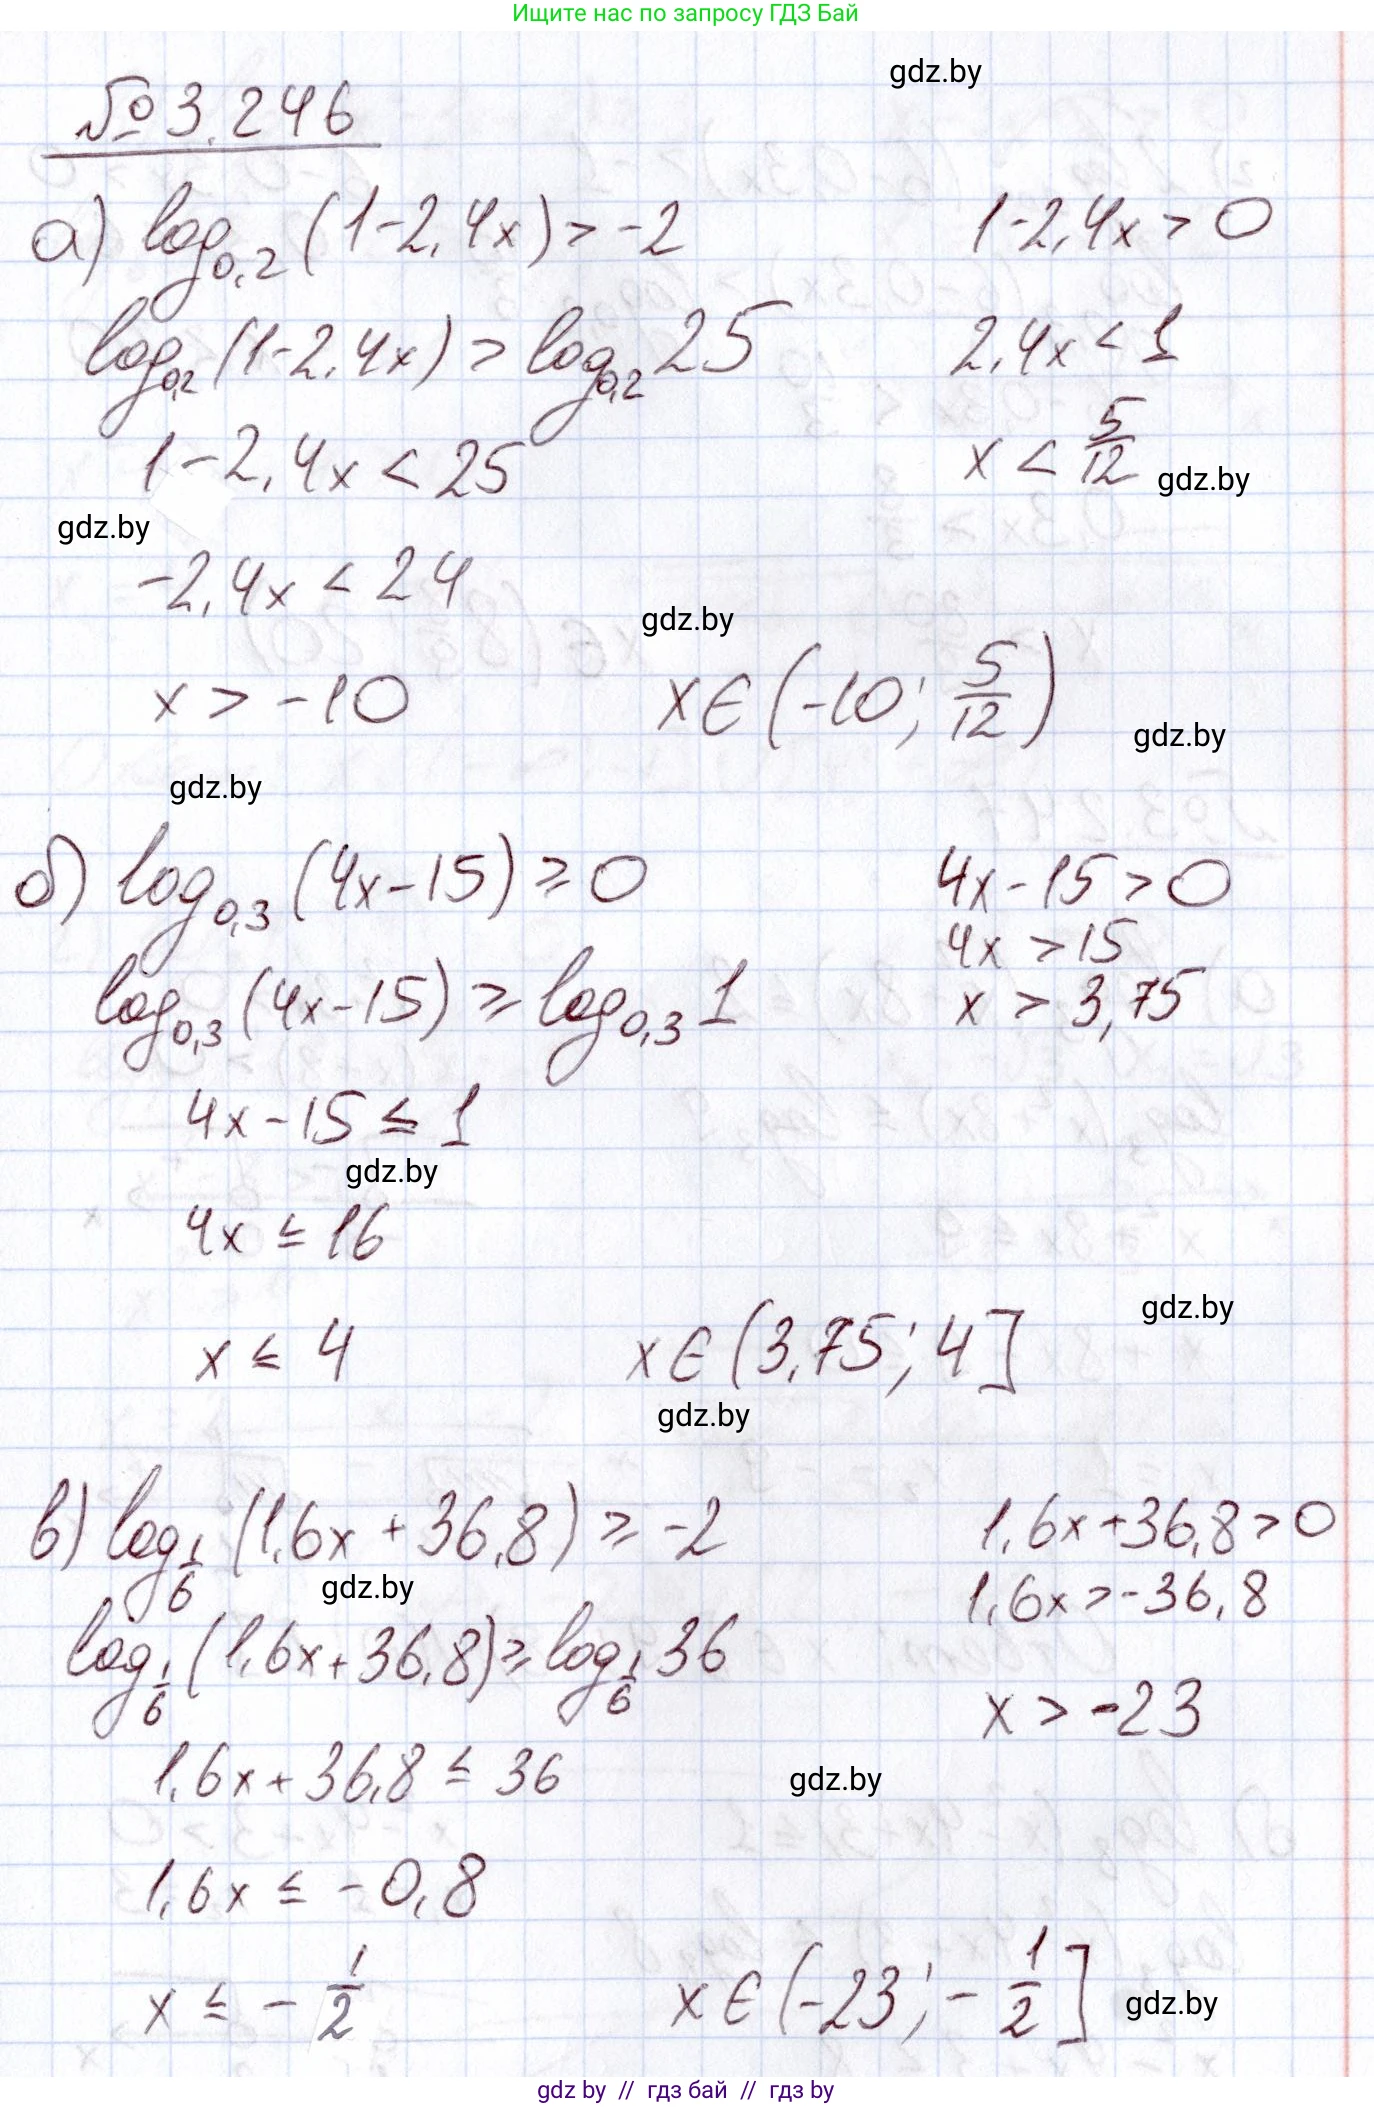 Ищите нас по запросу ГДЗ Бай
gdz.by
№3.246
а) log₀,₂(1-2,4x) > -2    1-2,4x > 0
log₀,₂(1-2,4x) > log₀,₂ 25    2,4x < 1
1-2,4x < 25    x < 5/12
gdz.by
gdz.by
-2,4x < 24
gdz.by
x > -10    x∈(-10; 5/12)
gdz.by
gdz.by
б) log₀,₃(4x-15) ≥ 0    4x-15 > 0
4x > 15
log₀,₃(4x-15) ≥ log₀,₃ 1    x > 3,75
4x-15 ≤ 1
gdz.by
4x ≤ 16
gdz.by
x ≤ 4    x∈(3,75; 4]
gdz.by
в) log_1/6(1,6x + 36,8) ≥ -2    1,6x+36,8 > 0
gdz.by
1,6x > -36,8
log_1/6(1,6x+36,8) ≥ log_1/6 36
x > -23
1,6x+36,8 ≤ 36
gdz.by
1,6x ≤ -0,8
x ≤ -1/2    x∈(-23; -1/2]
gdz.by
gdz by // гдз бай // гдз by